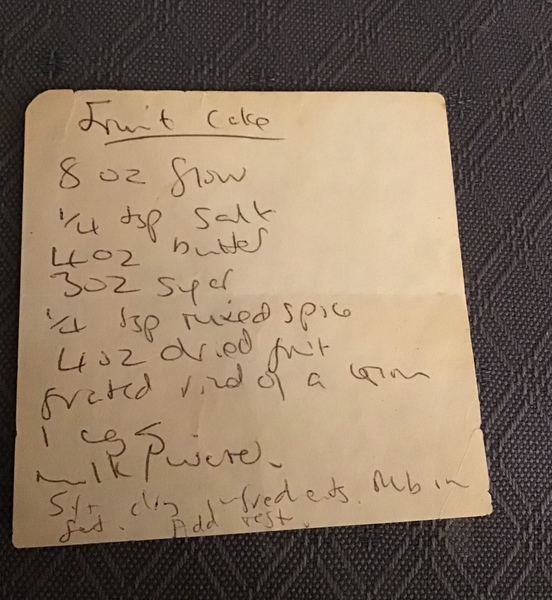 Fruit Cake
8 oz flour
1/4 tsp Salt
4 oz butter
3 oz sugar
1/4 tsp mixed spice
4 oz dried fruit
grated rind of a lemon
1 egg
milk
dry ingredients. Rub in
fat. Add rest.